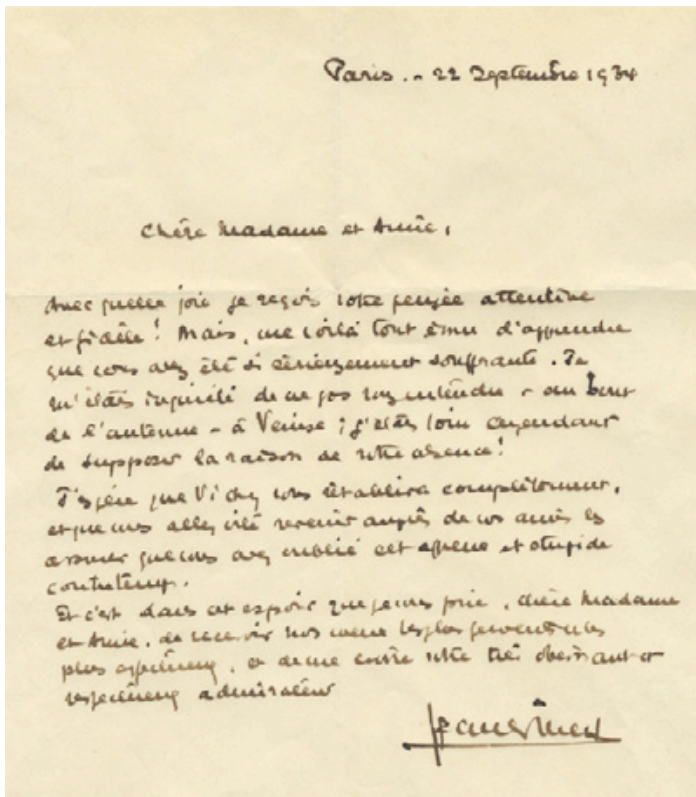 Paris. - 22 Septembre 1934
Chère Madame et Amie,
Avec quelle joie je reçois votre pensée attentive
et fidèle! Mais, me voilà tout ému d'apprendre
que vous avez été si sérieusement souffrante. Je
m'étais inquiété de ne pas vous entendre - au bout
de l'antenne - à Venise; j'étais loin cependant
de supposer la raison de votre absence!
J'espère que Vichy vous rétablira complètement,
et que vous allez vite revenir auprès de vos amis les
assurer que vous avez oublié cet affreux et stupide
contretemps.
Et c'est dans cet espoir que je vous prie, chère Madame
et Amie, de recevoir nos vœux les plus fervents et les
plus affectueux, et de me croire votre très obéissant et
respectueux admirateur